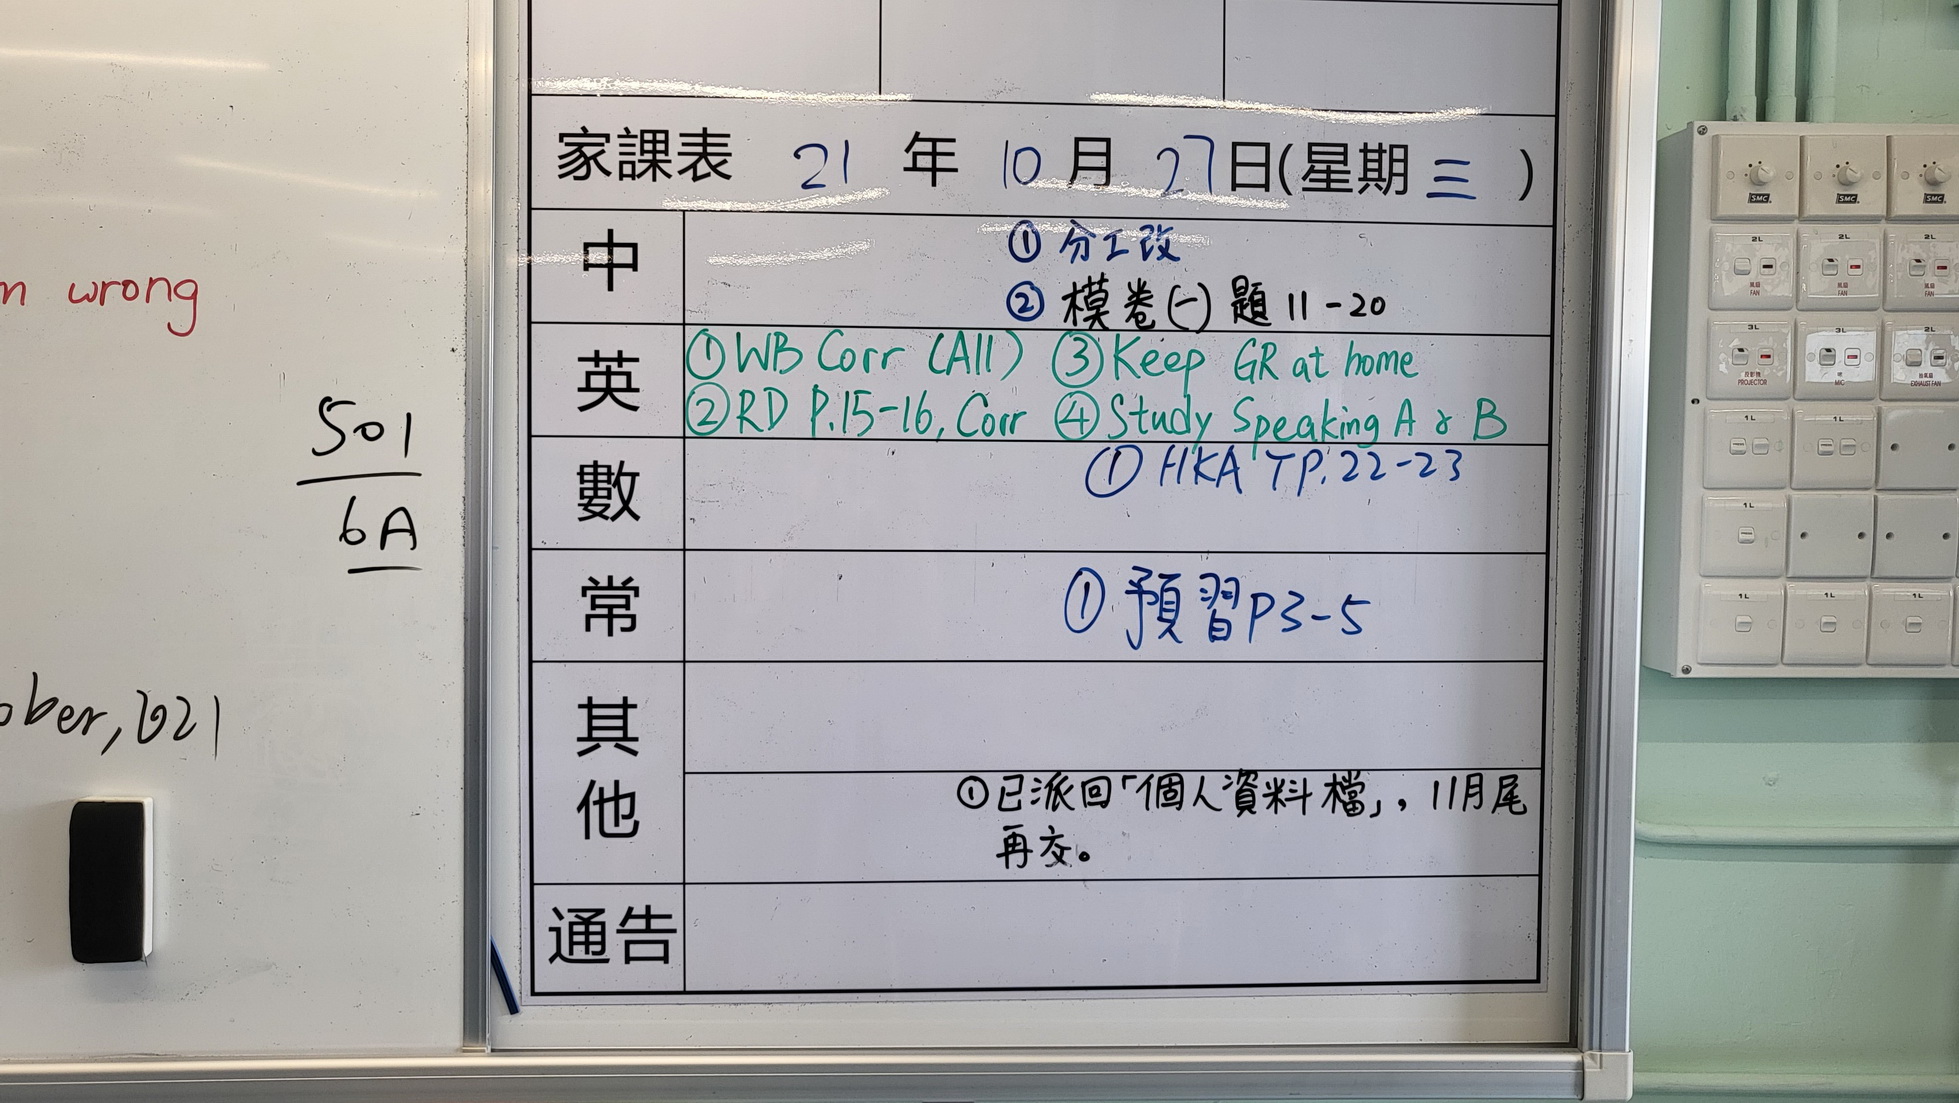 n wrong
501
6A
ober, 2021
家課表 21 年 10 月 27 日(星期 三 )
中
① 分工改
② 模卷(一) 題 11-20
英
① WB Corr (All) ③ Keep GR at home
② RD P.15-16, Corr ④ Study Speaking A & B
數
① HKA TP.22-23
常
① 預習P3-5
其他
① 已派回「個人資料檔」，11月尾
再交。
通告
SMC SMC SMC
2L 2L 2L
風扇 風扇 風扇
FAN FAN FAN
3L 3L 2L
投影機 咪 抽氣扇
PROJECTOR MIC EXHAUST FAN
1L 1L
1L
1L 1L 1L